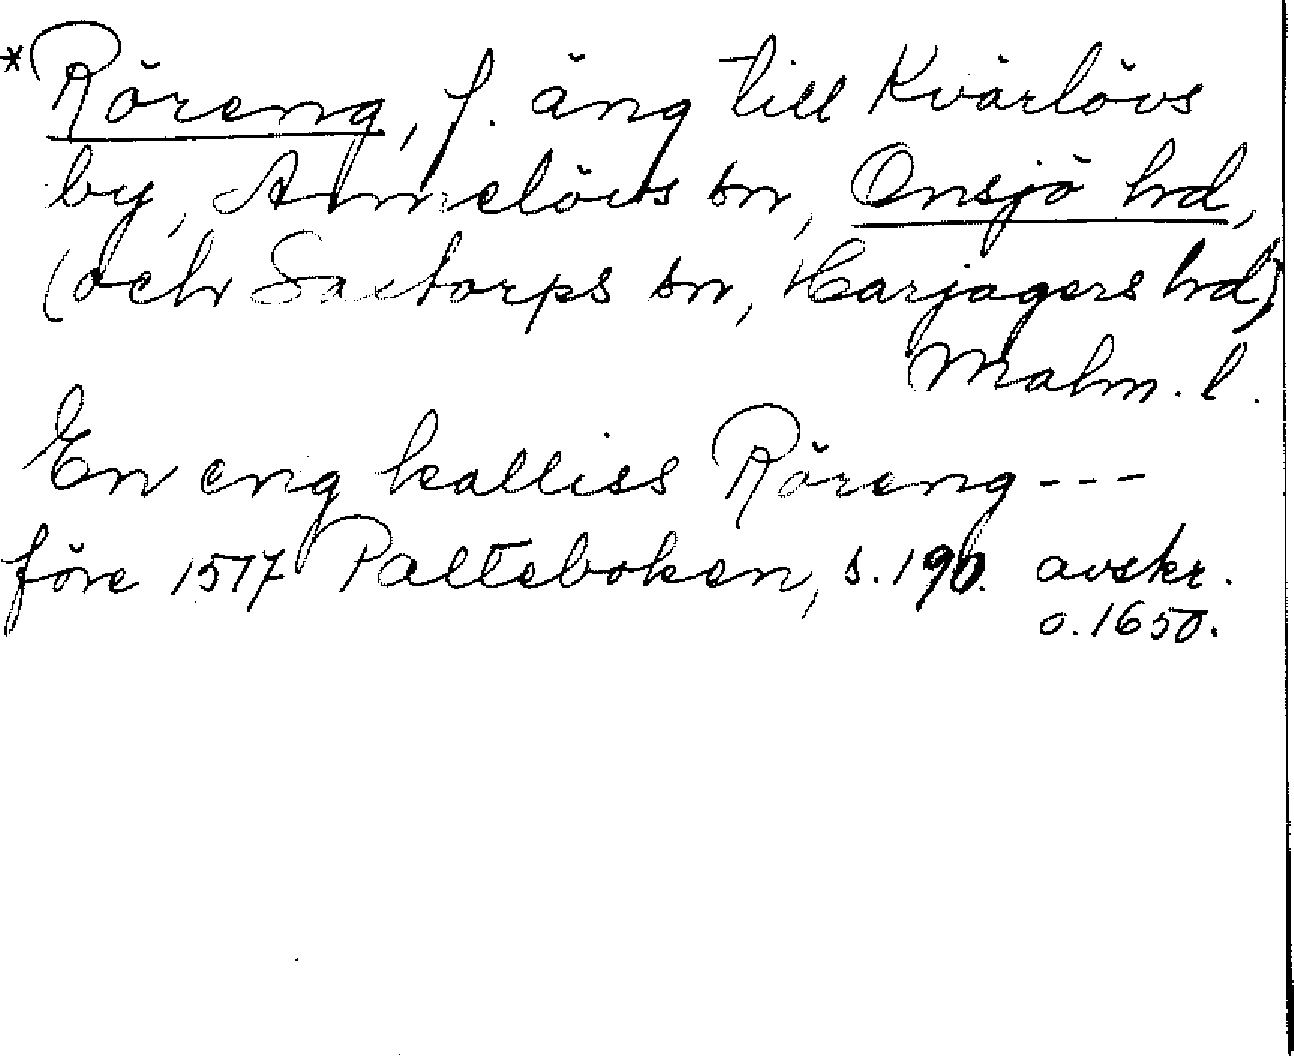 *Röreng, f. äng till Kvärlövs
by, Annelövs sn, Onsjö hd,
(och Saxtorps sn, Harjagers hd)
Malm. l.
En eng kalliss Röreng ---
före 1517 Palteboken, s. 190. avskr.
o. 1650.